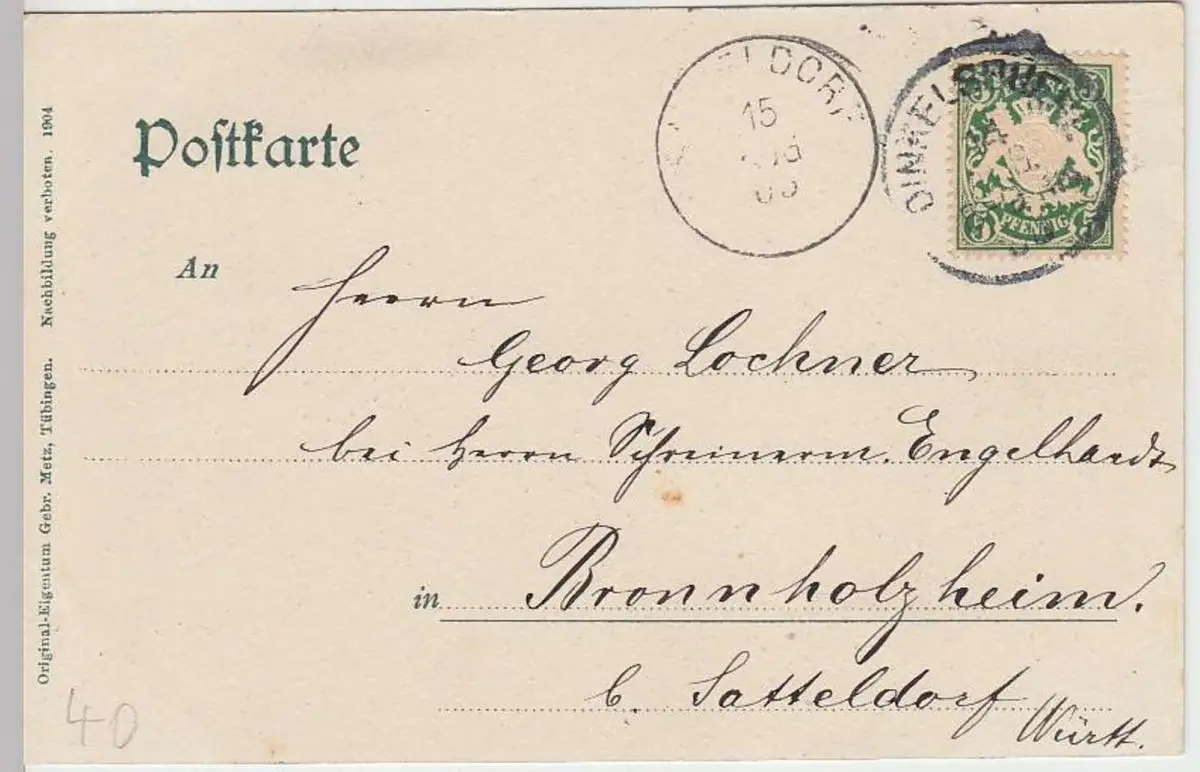 Postkarte
DINKELSBUEHL
15
PFENNIG
5 5
An Herrn
Georg Lochner
bei Herrn Schreinerm. Engelhardt
in Bronnholzheim.
b. Satteldorf
Württ.
Original-Eigentum Gebr. Metz, Tübingen. Nachbildung verboten. 1904
40